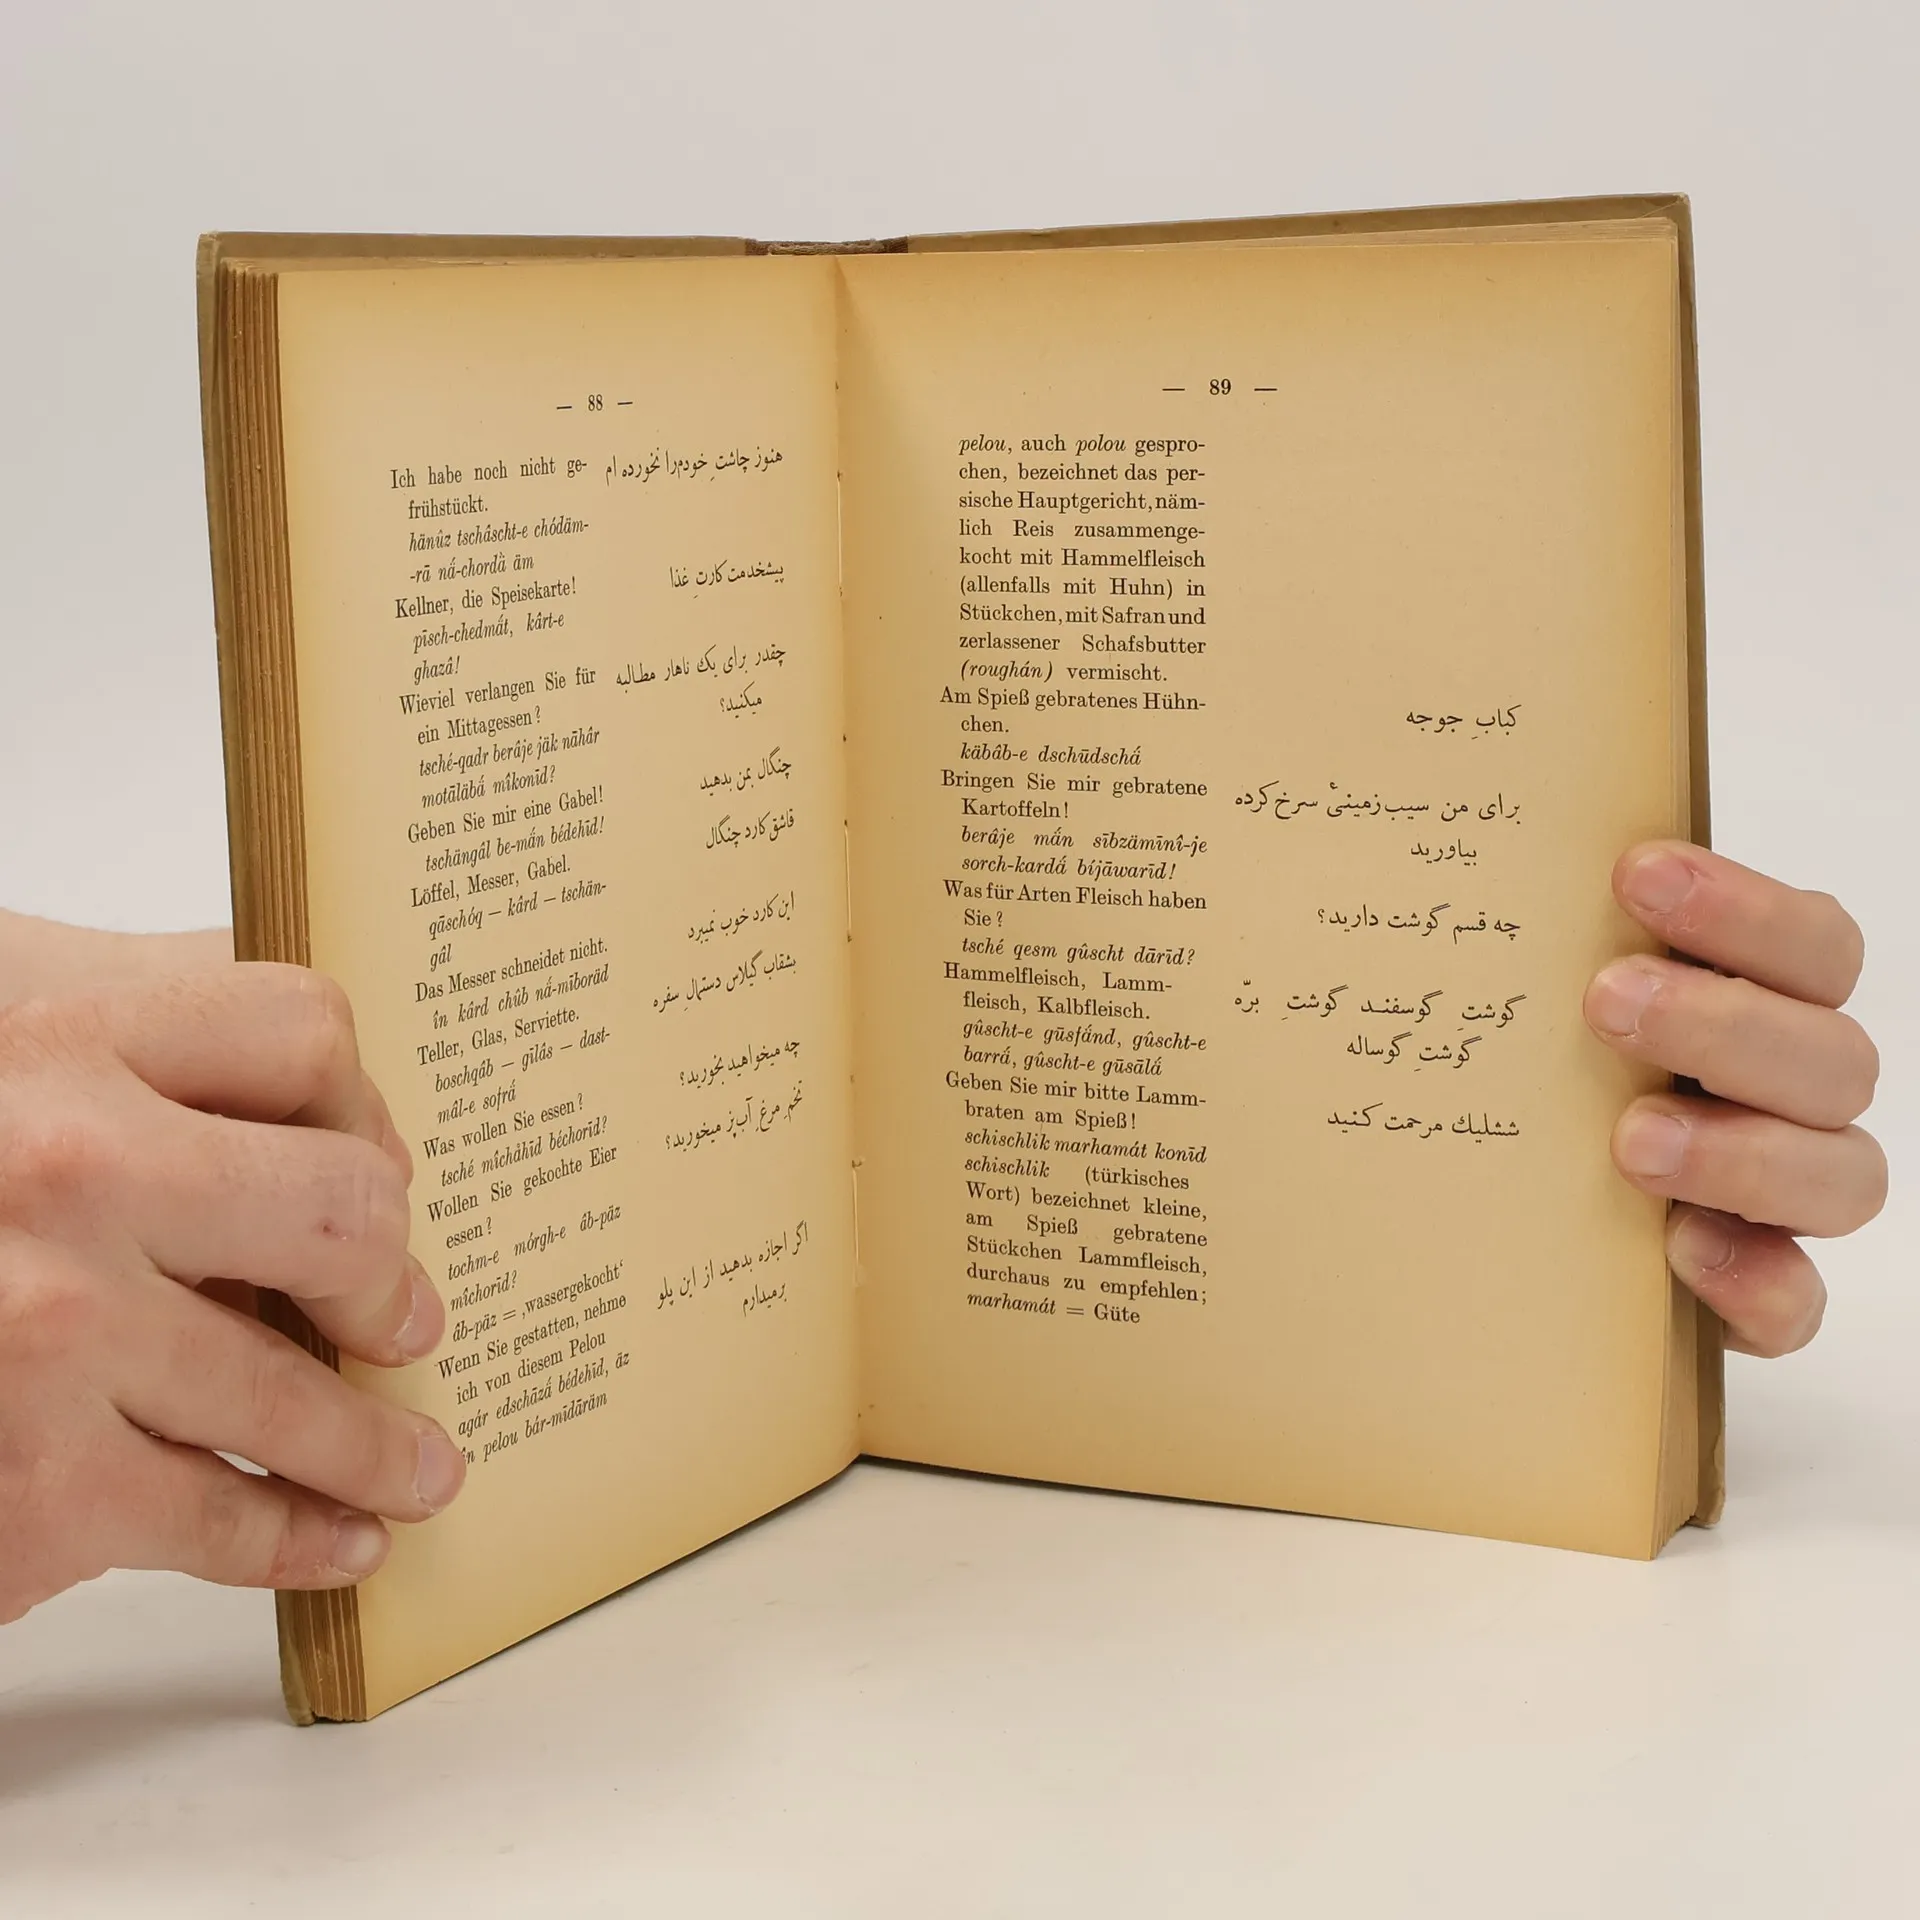 — 88 —
Ich habe noch nicht ge-
frühstückt.
hänûz tschâscht-e chódäm-
-rā nắ-chordä̀ äm
هنوز چاشتِ خودم‌را نخورده ام
Kellner, die Speisekarte!
pīsch-chedmắt, kârt-e
ghazâ!
پیشخدمت کارتِ غذا
Wieviel verlangen Sie für
ein Mittagessen?
tsché-qadr berâje jäk nāhâr
motāläbắ mîkonīd?
چقدر برای یك ناهار مطالبه
میکنید؟
Geben Sie mir eine Gabel!
tschängâl be-mắn bédehīd!
چنگال بمن بدهید
Löffel, Messer, Gabel.
qāschóq — kârd — tschän-
gâl
قاشق کارد چنگال
Das Messer schneidet nicht.
în kârd chûb nắ-mīboräd
این کارد خوب نمیبرد
Teller, Glas, Serviette.
boschqâb — gīlâs — dast-
mâl-e sofrắ
بشقاب گیلاس دستمالِ سفره
Was wollen Sie essen?
tsché mîchåhīd béchorīd?
چه میخواهید بخورید؟
Wollen Sie gekochte Eier
essen?
tochm-e mórgh-e âb-päz
mîchorīd?
تخمِ مرغِ آب‌پز میخورید؟
âb-päz = ‚wassergekocht‘
Wenn Sie gestatten, nehme
ich von diesem Pelou
agár edschāzắ bédehīd, äz
în pelou bár-mīdāräm
اگر اجازه بدهید از این پلو
برمیدارم
— 89 —
pelou, auch polou gespro-
chen, bezeichnet das per-
sische Hauptgericht, näm-
lich Reis zusammenge-
kocht mit Hammelfleisch
(allenfalls mit Huhn) in
Stückchen, mit Safran und
zerlassener Schafsbutter
(roughán) vermischt.
Am Spieß gebratenes Hühn-
chen.
käbâb-e dschūdschắ
کبابِ جوجه
Bringen Sie mir gebratene
Kartoffeln!
berâje mắn sībzämīnî-je
sorch-kardắ bíjāwarīd!
برای من سیب‌زمینیٔ سرخ‌کرده
بیاورید
Was für Arten Fleisch haben
Sie?
tsché qesm gûscht dārīd?
چه قسم گوشت دارید؟
Hammelfleisch, Lamm-
fleisch, Kalbfleisch.
gûscht-e gūsfắnd, gûscht-e
barrắ, gûscht-e gūsālắ
گوشتِ گوسفند گوشتِ برّه
گوشتِ گوساله
Geben Sie mir bitte Lamm-
braten am Spieß!
schischlik marhamát konīd
ششلیك مرحمت کنید
schischlik (türkisches
Wort) bezeichnet kleine,
am Spieß gebratene
Stückchen Lammfleisch,
durchaus zu empfehlen;
marhamát = Güte